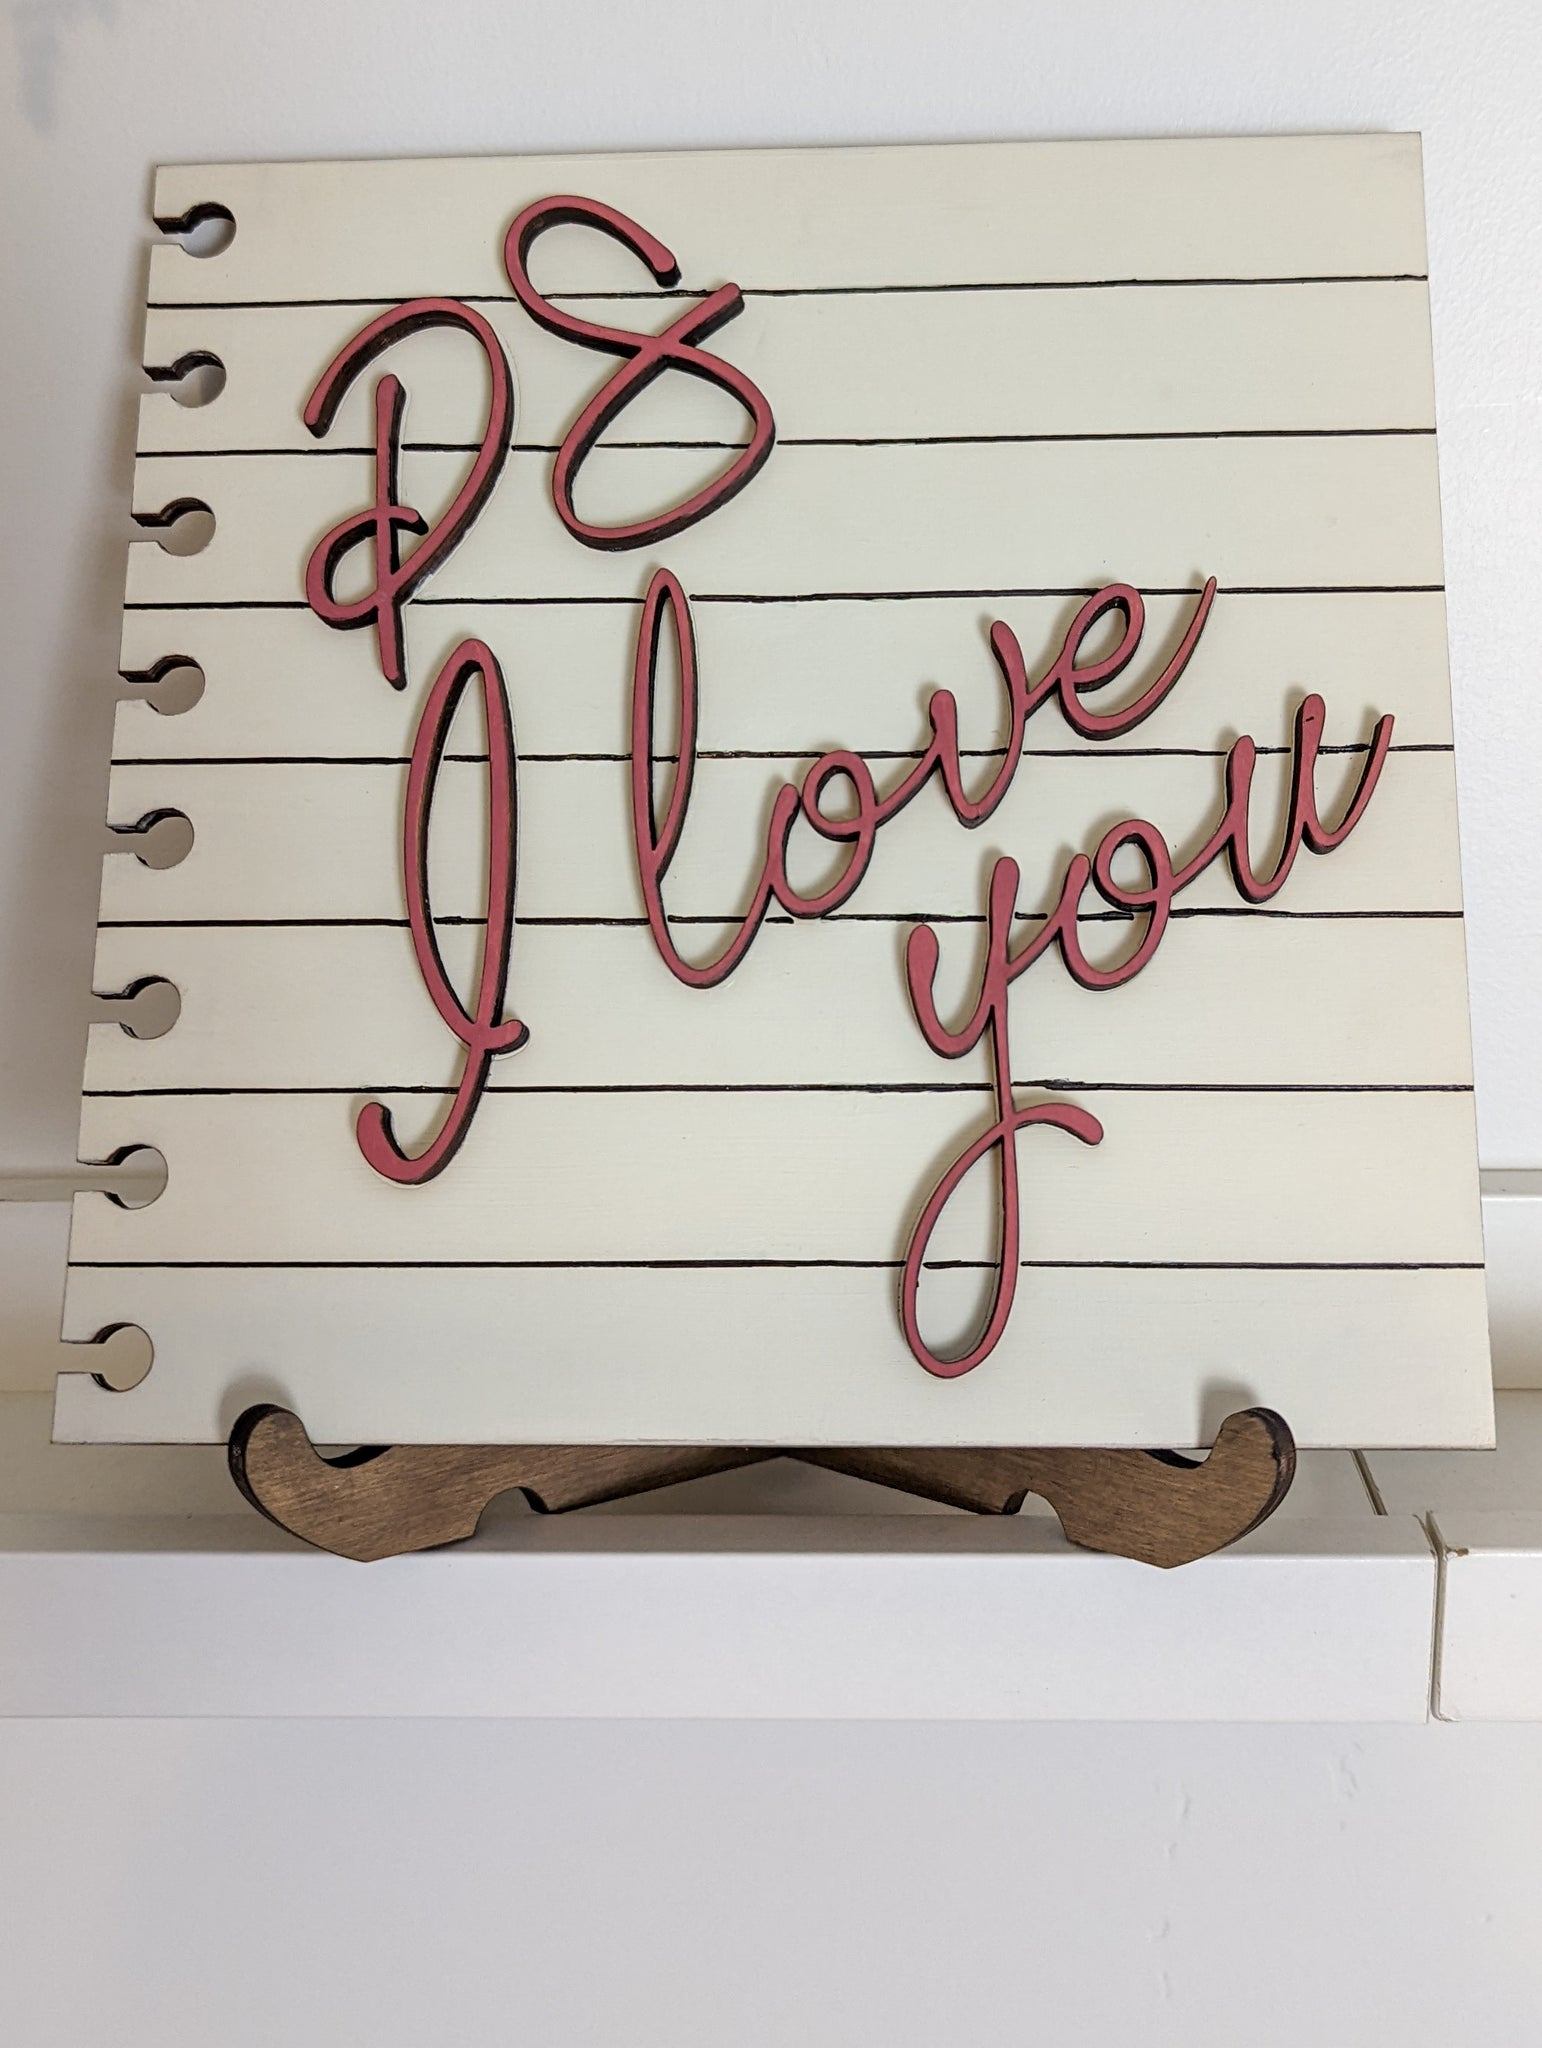 PS
I love
you